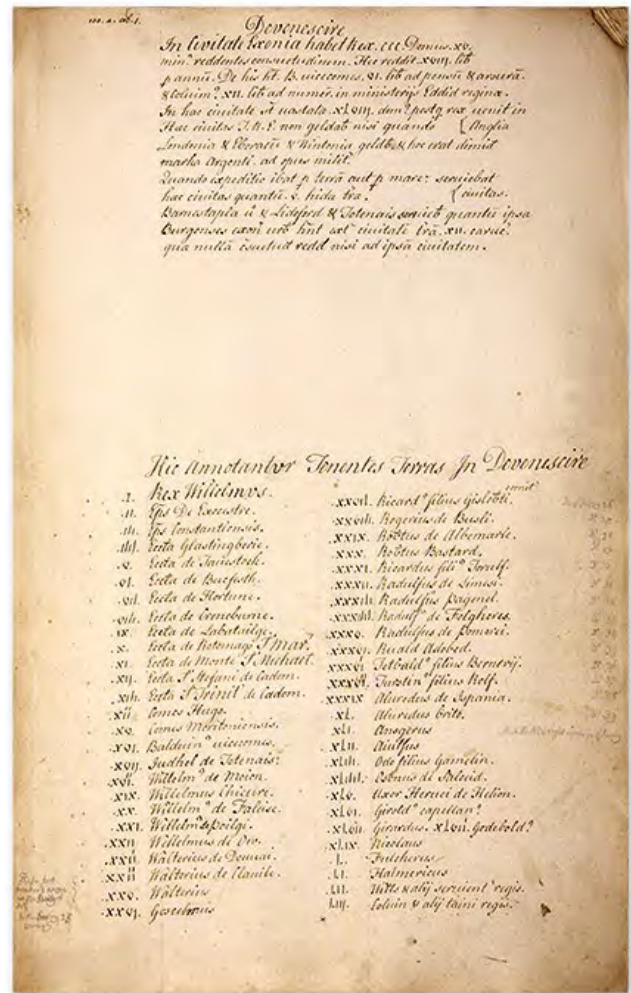 Devenescire
In Civitate Exonia habet Rex. ccc. Domus. xv.
min? reddentes consuetudinem. Hec reddit. xviij. lib
p annū. De his ht. B. uicecomes. vi. lib ad pensū & arsurā.
& Coluim? xii. lib ad numer. in ministerijs Eddid reginæ.
In hac ciuitate st uastatæ. xLviij. dom? postq rex uenit in
Hæc ciuitas T.R.E. non geldab nisi quando { Anglia
Londonia & Eboracū & Wintonia geldb & hoc erat dimid
marka Argenti. ad opus milit.
Quando expeditio ibat p terrā aut p mare? seruiebat
hæc ciuitas quantū. v. hidæ træ. { ciuitas.
Barnastapla ū & Lideford & Totenais seruieb quantū ipsa
Burgenses exon urb hnt ext ciuitatē trā. xii. caruc?
quæ nullā c̄suetud redd nisi ad ipsā ciuitatem.
Hic Annotantvr Tenentes Terras In Devenescire
.I. Rex Willelmvs.
.II. Eps De Execestre.
.III. Eps Constantiensis.
.IIII. Eccta Glastingberie.
.V. Eccta de Tauestoch.
.VI. Eccta de Bucfesth.
.VII. Eccta de Hortune.
.VIII. Eccta de Creneburne.
.IX. Eccta de Labatailge.
.X. Eccta de Rotomagi S Mar.
.XI. Eccta de Monte S Michael.
.XII. Eccta S Stefani de Cadom.
.XIII. Eccta S Trinit de Cadom.
Comes Hugo.
.XV. Comes Moritoniensis.
.XVI. Balduin? uicecomes.
.XVII. Judhel de Totenais.
Willelm? de Moion.
.XIX. Willelmus Chieure.
.XX. Willelm? de Faleise.
.XXI. Willelm? de Poilgi.
.XXII. Willelmus de Ow.
Walterius de Douuai.
Walterius de Clauile.
.XXV. Walterius
.XXVI. Goscelmus
Ricard? filius Gisleb̄ti. comit
.XXVIII. Rogerius de Busli.
.XXIX. Robtus de Albemarle.
.XXX. Robtus Bastard.
.XXXI. Ricardus fili? Torulf.
.XXXII. Radulfus de Limesi.
.XXXIII. Radulfus Pagenel.
.XXXIIII. Radulf? de Felgheres.
.XXXV. Radulfus de Pomerei.
.XXXVI. Ruald Adobed.
Tetbald? filius Bernerij.
Turstin? filius Rolf.
.XXXIX Aluredus de Ispania.
.XL. Aluredus brito.
.XLI. Ansgerus
.XLII. Aiulfus
.XLIII. Odo filius Gamelin.
.XLIIII. Osbnus de Salceid.
.XLV. Uxor Heruei de Helion.
.XLVI. Girold? capellan?
Girardus. XLVIII. Godebold?
.XLIX. Nicolaus
.L. Fulcherus
.LI. Haimericus
.LII. Wills & alij seruient? regis.
.LIII. Coluin & alij taini regis.